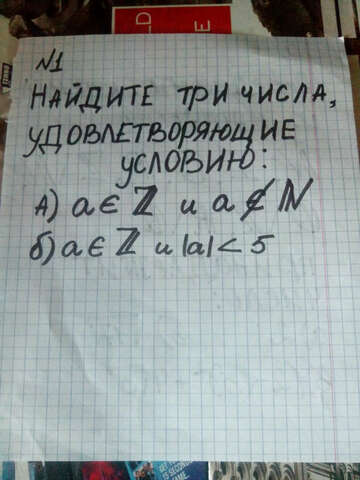 №1
НАЙДИТЕ ТРИ ЧИСЛА,
УДОВЛЕТВОРЯЮЩИЕ
УСЛОВИЮ:
А) a ∈ ℤ и a ∉ ℕ
б) a ∈ ℤ и |a| < 5